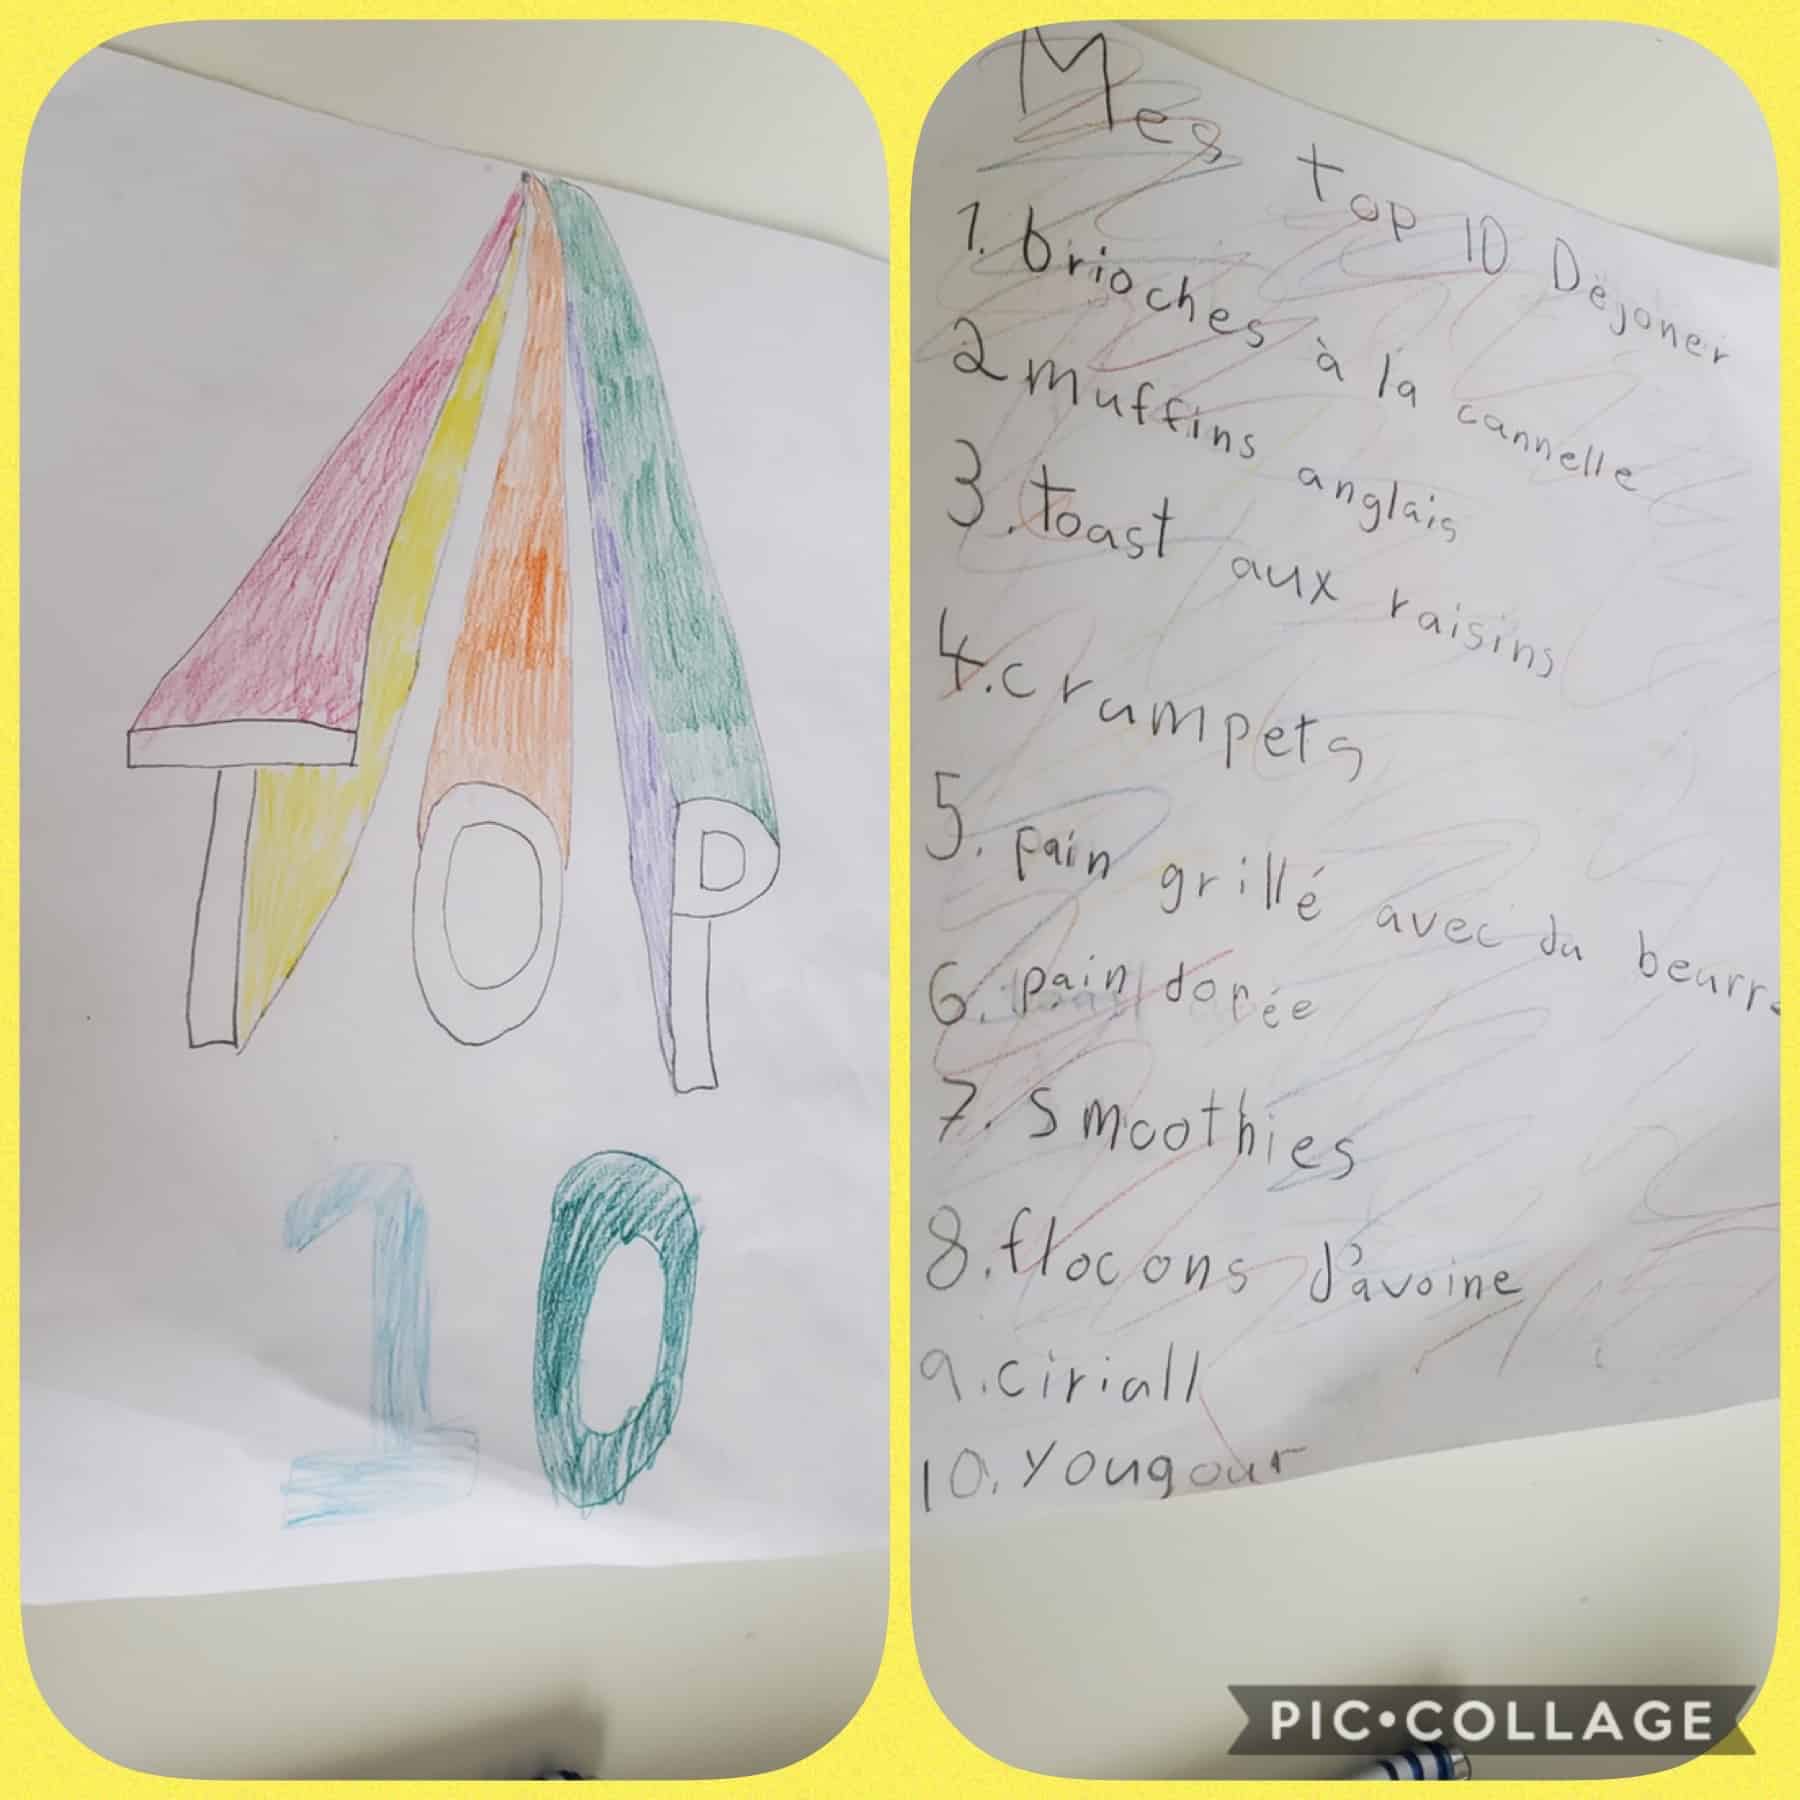 TOP
10
Mes top 10 Déjoner
1. brioches à la cannelle
2 muffins anglais
3. toast aux raisins
4. crumpets
5. pain grillé avec du beurre
6. pain dorée
7. smoothies
8. flocons d'avoine
9. ciriall
10. yougour
PIC•COLLAGE